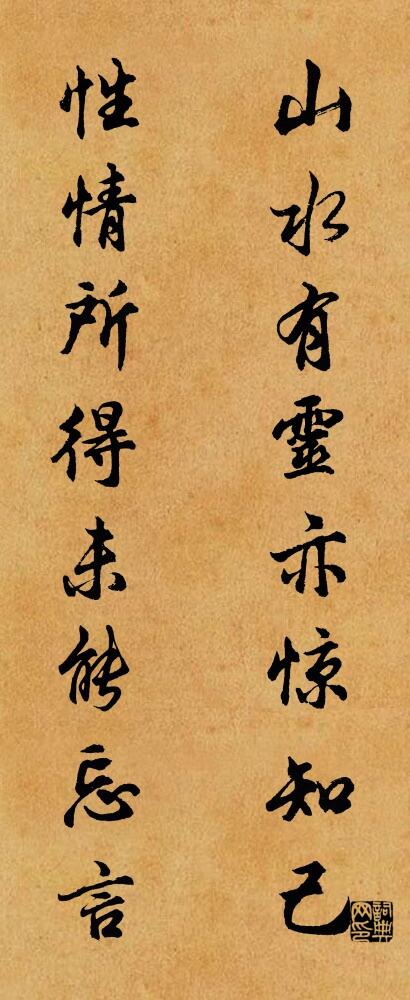 山水有靈亦惊知己
性情所得未能忘言
詞典网印